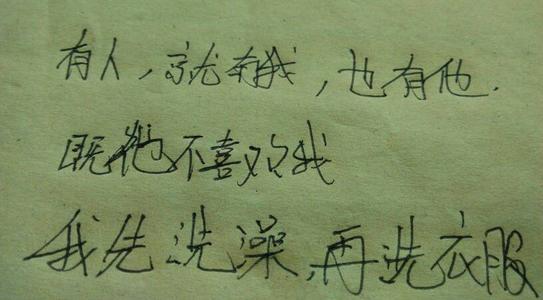 有人，就有我，也有他.
既他不喜欢我
我先洗澡，再洗衣服